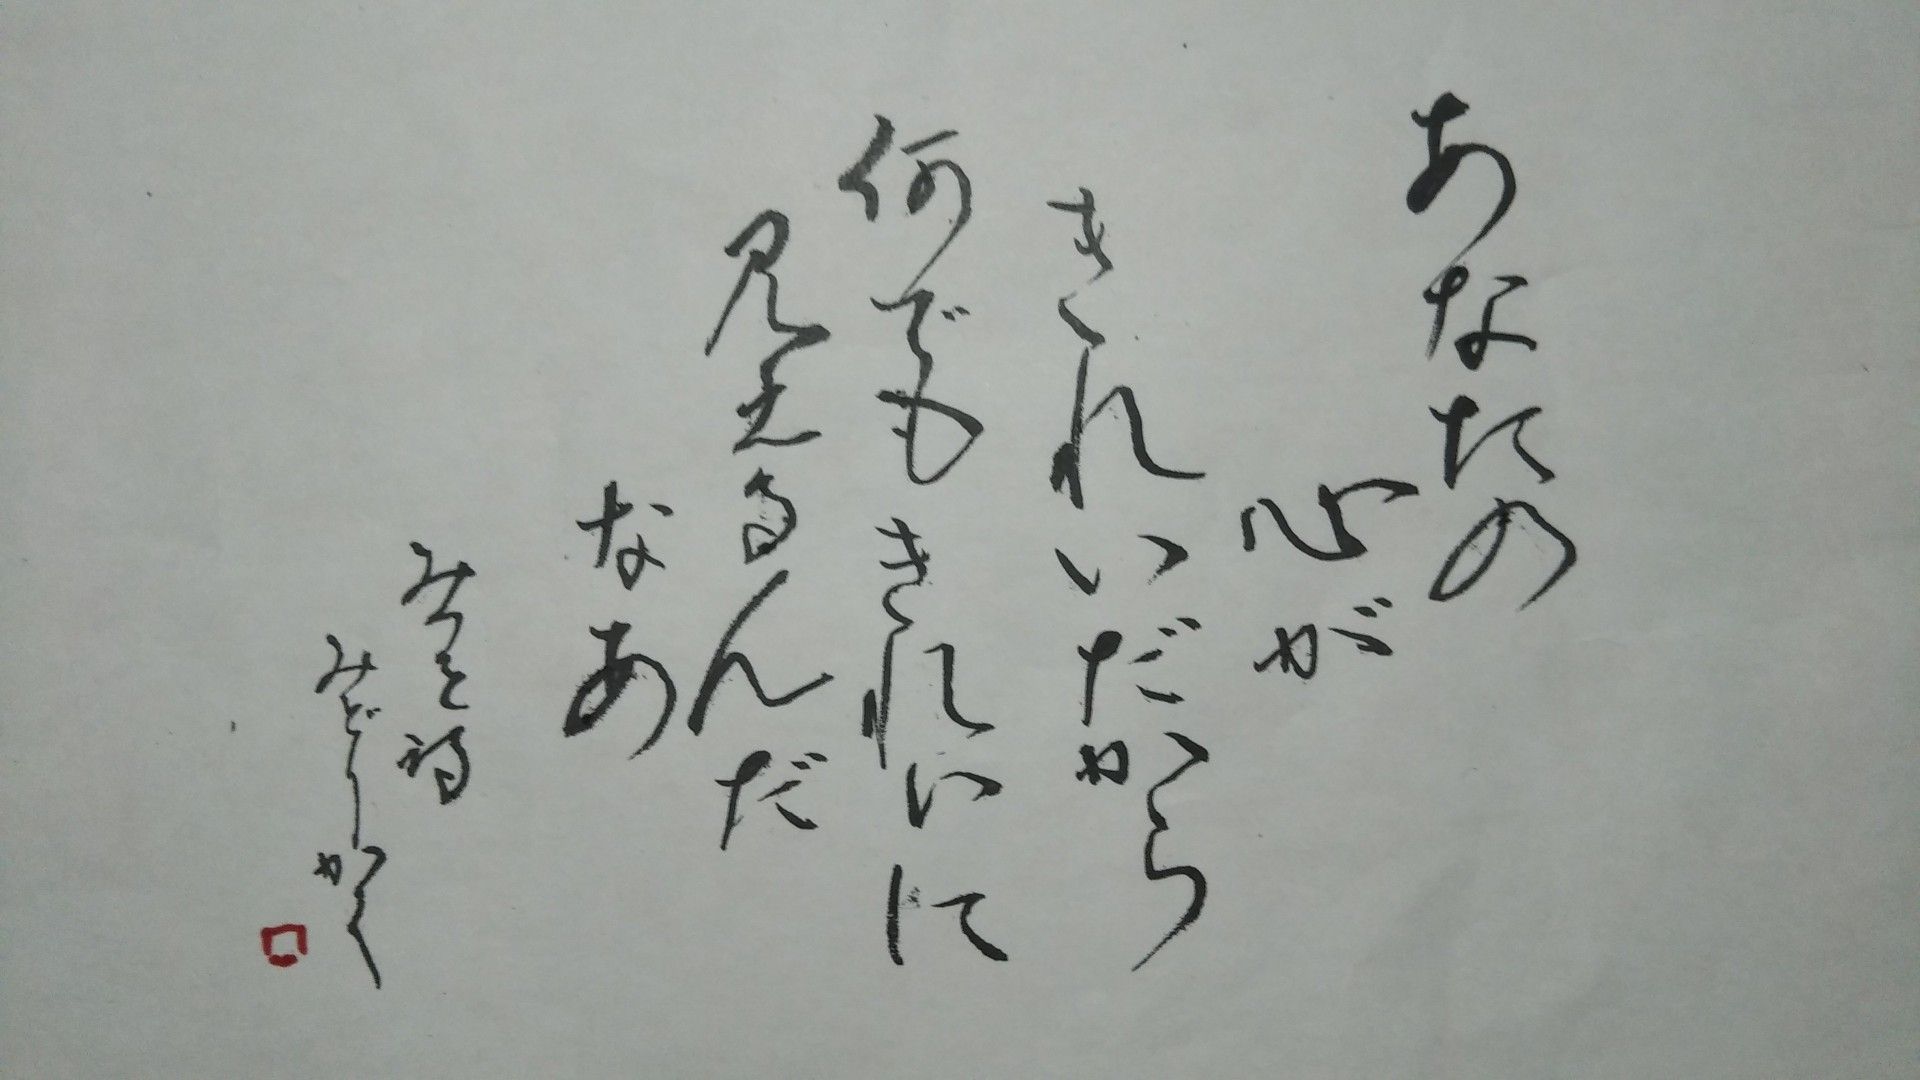 あなたの
心が
きれいだから
何でもきれいに
見えるんだ
なあ
みつを詩
みどりかく